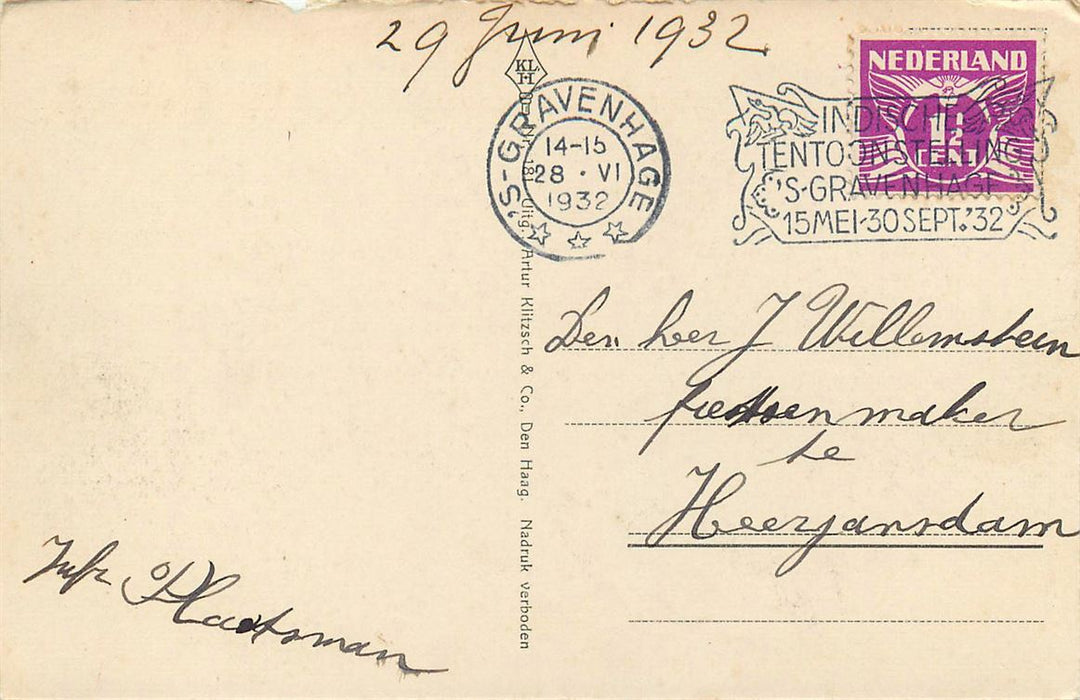 29 Juni 1932
KL.
H
'S-GRAVENHAGE
14-15
28 · VI
1932
NEDERLAND
1½
CENT
INDISCHE
TENTOONSTELLING
'S-GRAVENHAGE
15 MEI-30 SEPT.'32
Uitg. Artur Klitzsch & Co., Den Haag. Nadruk verboden
Den heer J Willemstein
fietsenmaker
te
Heerjansdam
Plaatsman